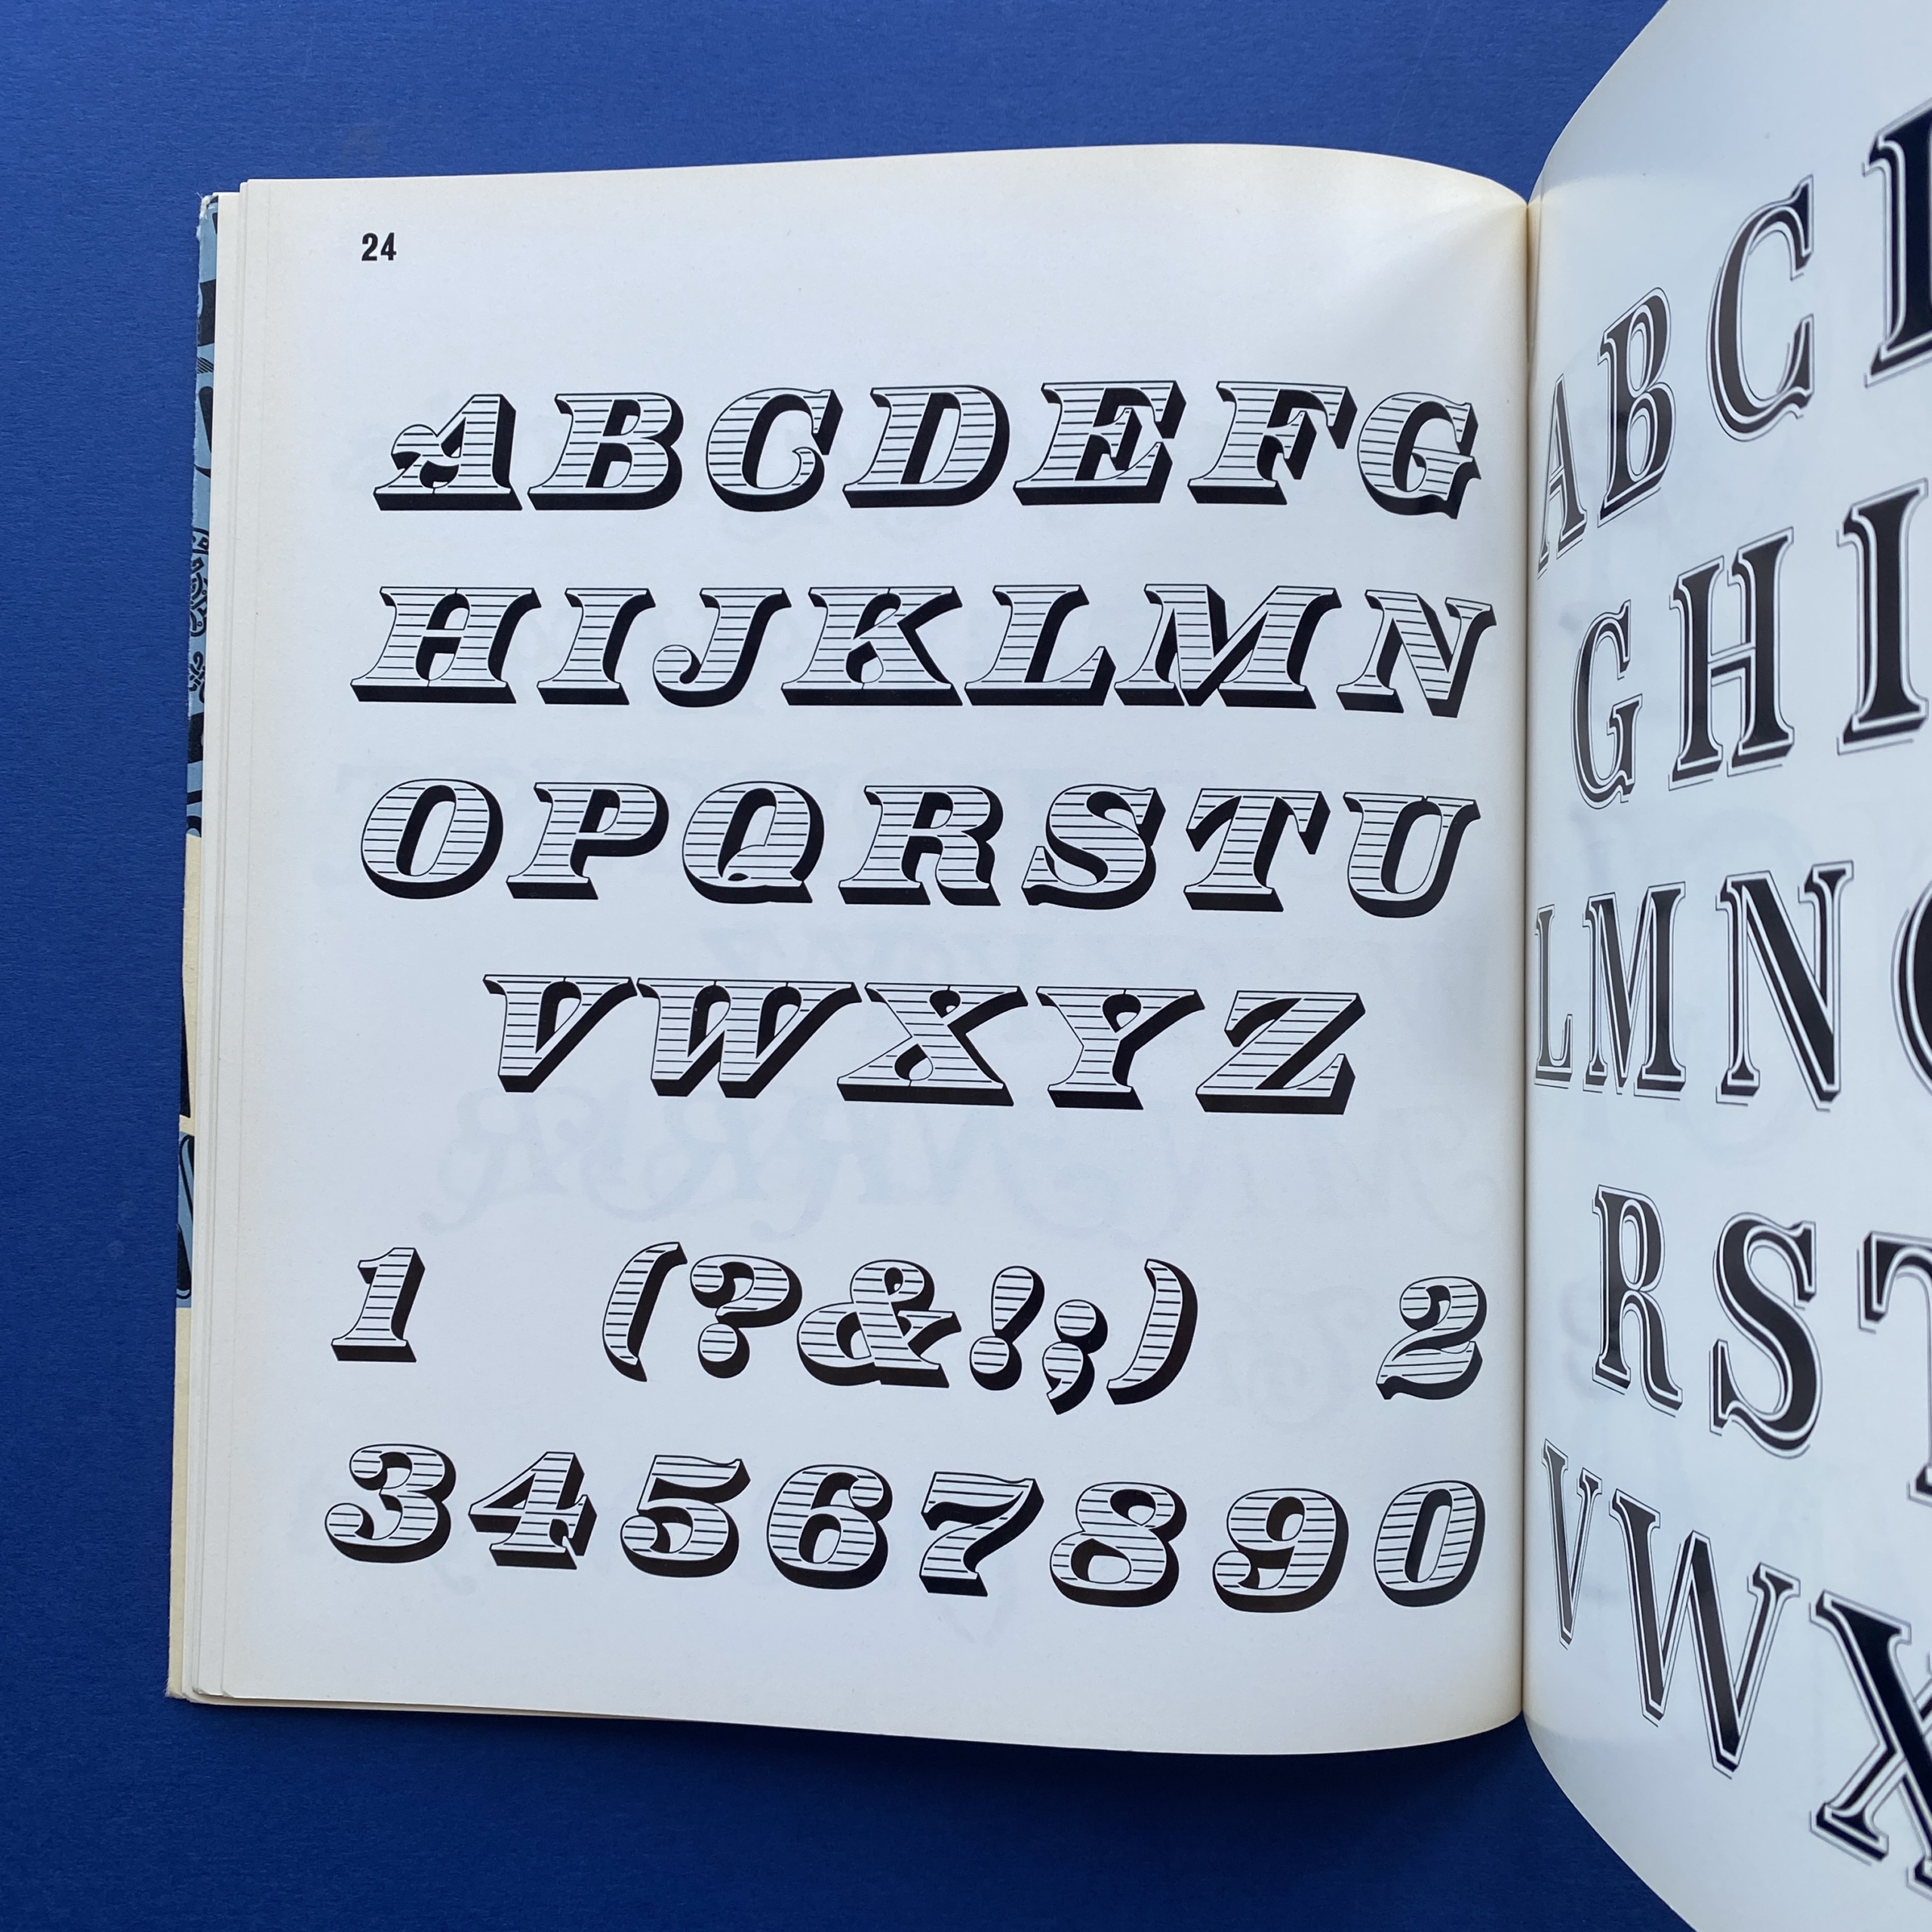 24
ABCDEFG
HIJKLMN
OPQRSTU
VWXYZ
1 (?&!;) 2
34567890
ABC
GHI
LMN
RST
VWX